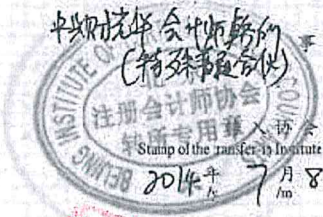 中兴财光华会计师事务所 事
(特殊普通合伙)
BEIJING INSTITUTE OF
注册会计师协会
转所专用章
入协会
Stamp of the transfer-in Institute
2014年 7月 8
/y /m